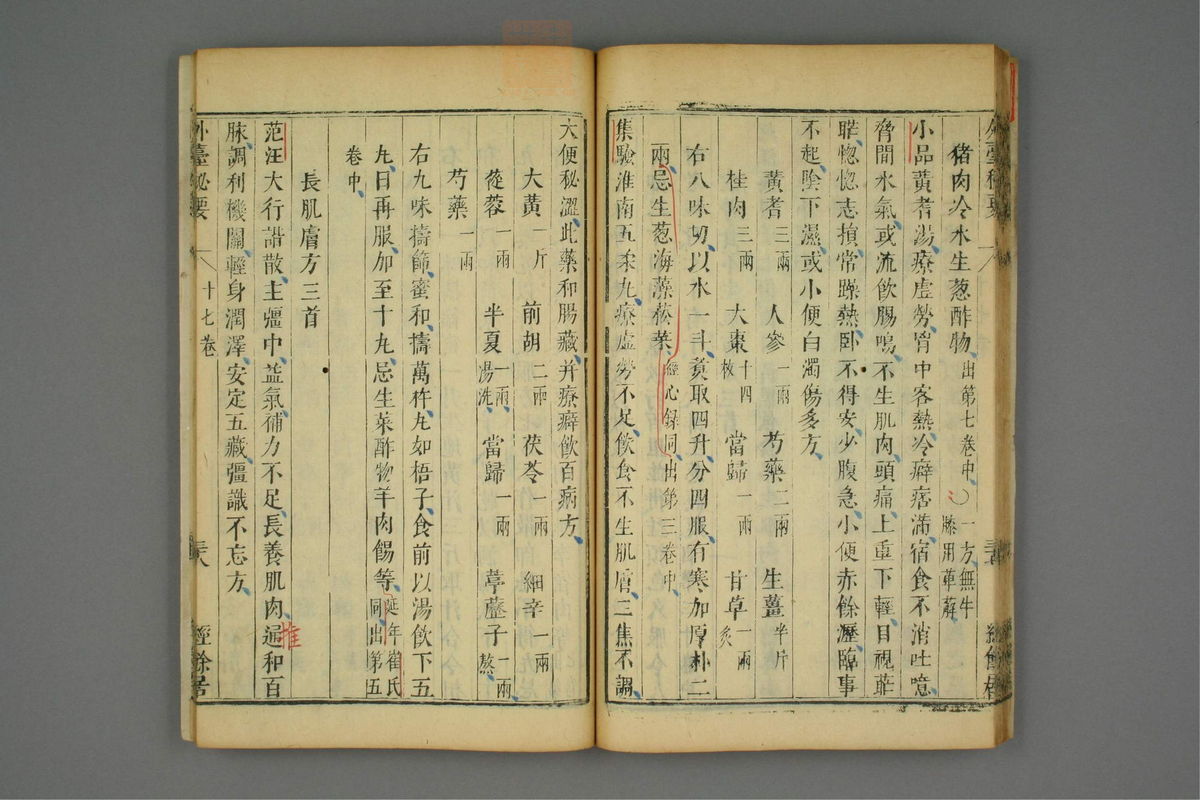 外臺秘要
經餘居
猪肉冷水生葱酢物出第七卷中〇一方無牛
膝用萆薢
小品黃耆湯療虛勞胷中客熱冷癖痞滿宿食不消吐噫
脅間水氣或流飲腸鳴不生肌肉頭痛上重下輕目視𥆨
𥆨惚惚志損常躁熱卧不得安少腹急小便赤餘瀝臨事
不起陰下濕或小便白濁傷多方
黃耆三兩 人參一兩 芍藥二兩 生薑半斤
桂肉三兩 大棗十四枚 當歸一兩 甘草一兩炙
右八味切以水一斗煑取四升分四服有寒加厚朴二
兩忌生葱海藻菘菜經心録同出第三卷中
集驗淮南五柔丸療虛勞不足飲食不生肌膚三焦不調
大便秘澀此藥和腸藏并療癖飲百病方
大黃一斤 前胡二兩 茯苓一兩 細辛一兩
蓯蓉一兩 半夏一兩湯洗 當歸一兩 葶藶子一兩熬
芍藥一兩
右九味擣篩蜜和擣萬杵丸如梧子食前以湯飲下五
丸日再服加至十丸忌生菜酢物羊肉餳等延年崔氏同出第五
卷中
長肌膚方三首
范汪大行諧散主彊中益氣補力不足長養肌肉逓和百
推
脉調利機關輕身潤澤安定五藏彊識不忘方
外臺秘要
十七卷
三十八
經餘居